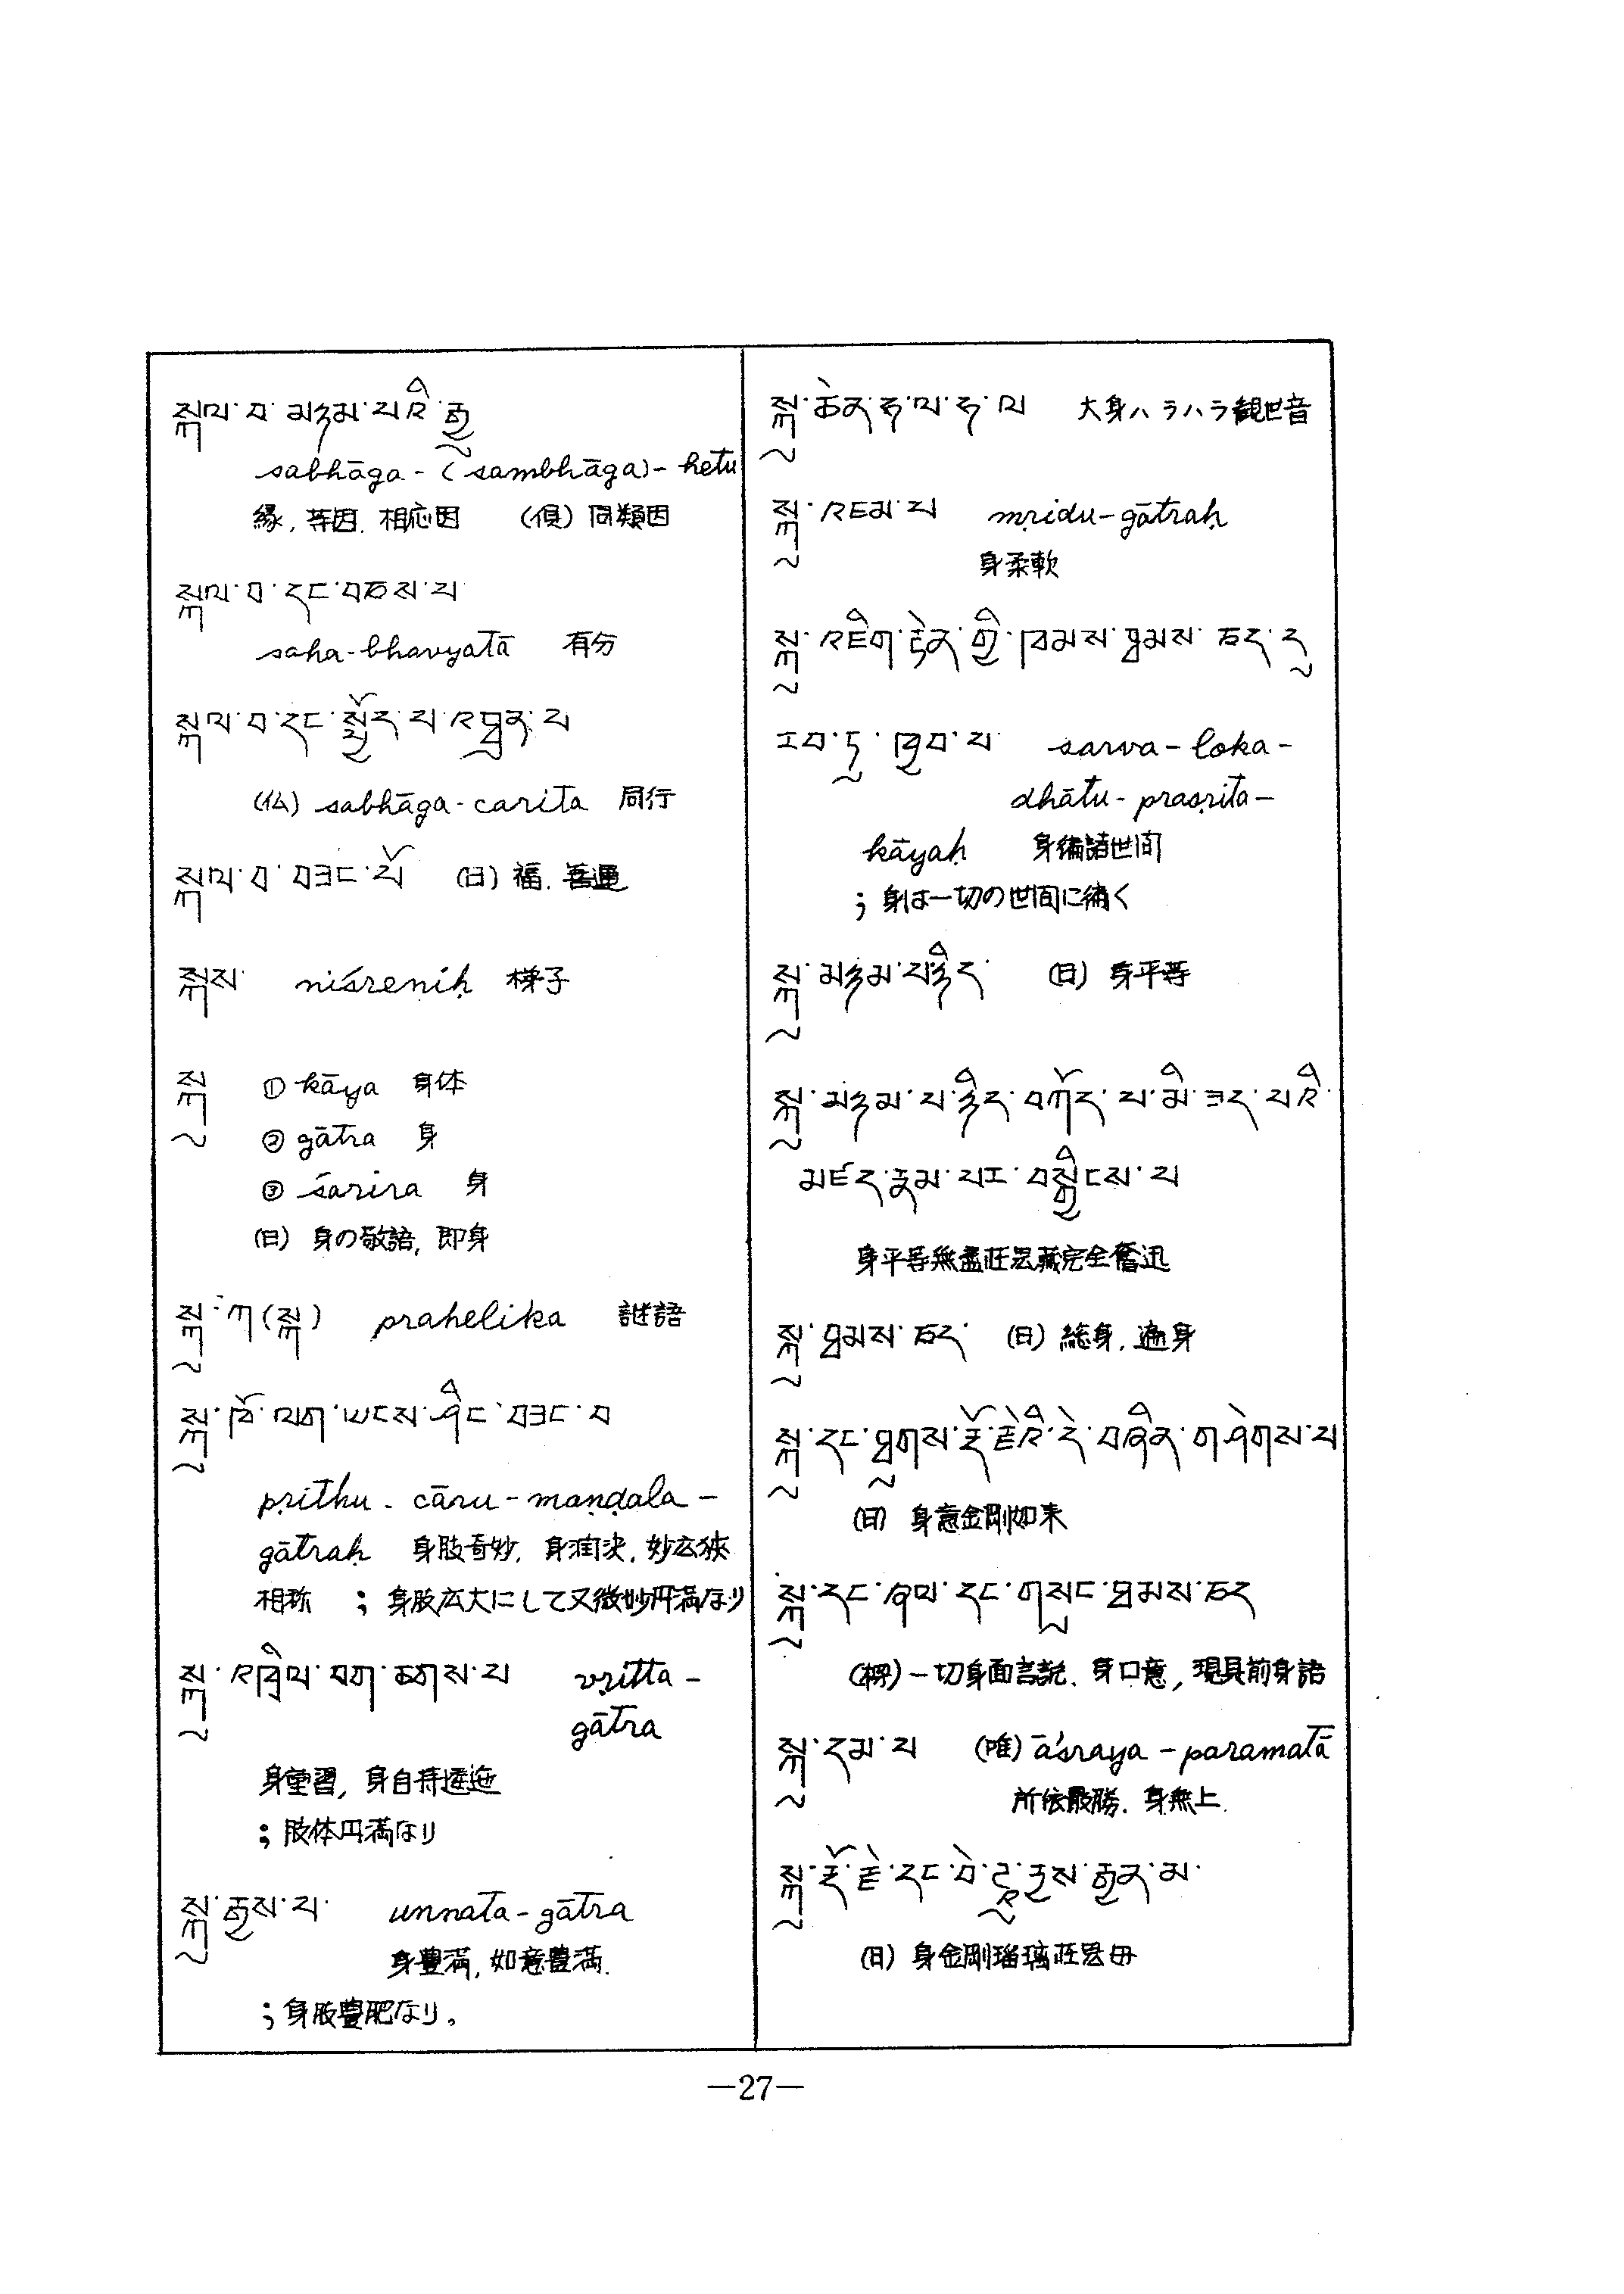 སྐལ་བ་མཉམ་པའི་རྒྱུ
sabhāga-(sambhāga)-hetu
縁, 等因. 相応因 (倶) 同類因
སྐལ་བ་དང་བཅས་པ
saha-bhavyatā 有分
སྐལ་བ་དང་སྤྱོད་པ་འཐུན་པ
(仏) sabhāga-carita 同行
སྐལ་བ་བཟང་པོ (日) 福. 善運
སྐས niśreniḥ 梯子
སྐུ ① kāya 身体
② gātra 身
③ śarira 身
(日) 身の敬語, 即身
སྐུ་ཀ(སྐ) prahelika 謎語
སྐུ་ཁོ་ལག་ཡངས་ཤིང་བཟང་བ
pṛithu - cāru - maṇḍala -
gātraḥ 身肢奇妙. 身洵決, 妙広狹
相称 ; 身肢広大にして又微妙円満なり
སྐུ་འཁྲིལ་བག་ཆགས་པ vṛitta -
gātra
身重習, 身自持逶迤
; 肢体円満なり
སྐུ་རྒྱས་པ unnata-gātra
身豊満, 如意豊満.
; 身肢豊肥なり。
སྐུ་ཆེན་ཧ་ལ་ཧ་ལ 大身ハラハラ観世音
སྐུ་འཇམ་པ mṛidu-gātraḥ
身柔軟
སྐུ་འཇིག་རྟེན་གྱི་ཁམས་ཐམས་ཅད་དུ
རབ་ཏུ་ཁྱབ་པ sarva-loka-
dhātu-prasṛita-
kāyaḥ 身徧諸世間
; 身は一切の世間に徧く
སྐུ་མཉམ་པ་ཉིད (日) 身平等
སྐུ་མཉམ་པ་ཉིད་བཀོད་པ་མི་ཟད་པའི
མཛོད་རྣམ་པར་བསྒྱིངས་པ
身平等無盡荘厳藏完全奮迅
སྐུ་ཐམས་ཅད (日) 総身. 遍身
སྐུ་དང་ཐུགས་རྡོ་རྗེའི་དེ་བཞིན་གཤེགས་པ
(日) 身意金剛如来
སྐུ་དང་ཞལ་དང་གསུང་ཐམས་ཅད
(梛) 一切身面言説. 身口意, 現具前身語
སྐུ་དམ་པ (唯) āśraya - paramatā
所依最勝. 身無上.
སྐུ་རྡོ་རྗེ་དང་བེ་དཱུ་རྱས་རྒྱན་མ
(日) 身金剛瑠璃荘厳母
—27—